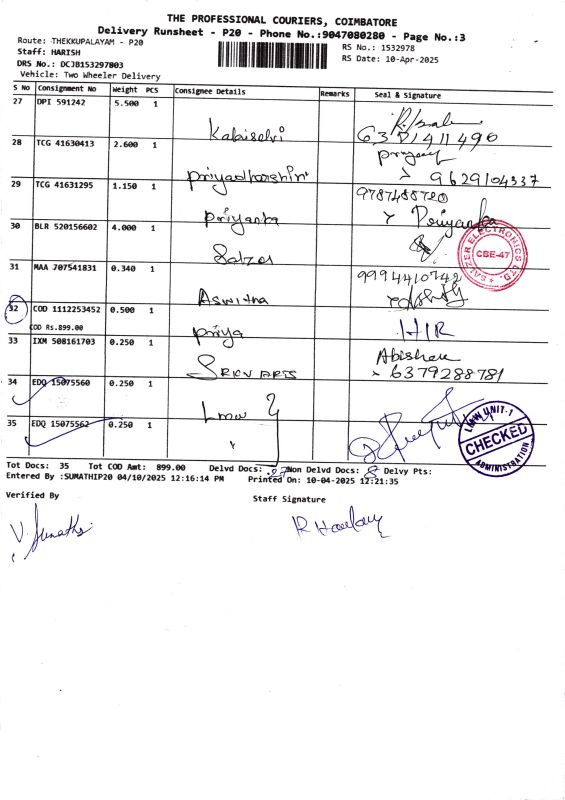 THE PROFESSIONAL COURIERS, COIMBATORE
Delivery Runsheet - P20 - Phone No.:9047080280 - Page No.:3
Route: THEKKUPALAYAM - P20
RS No.: 1532978
Staff: HARISH
RS Date: 10-Apr-2025
DRS No.: DCJB153297803
Vehicle: Two Wheeler Delivery
S No Consignment No Weight PCS Consignee Details Remarks Seal & Signature
27 DPI 591242 5.500 1
Kabiselvi
28 TCG 41630413 2.600 1
Priyadharshini 9629104337
29 TCG 41631295 1.150 1
9787488720
Priyanka Priyanka
30 BLR 520156602 4.000 1
Salzer
SALZER ELECTRONICS LTD.
CBE-47
31 MAA 707541831 0.340 1
9994410742
Aswitha
32 COD 1112253452 0.500 1
COD Rs.899.00
Priya HIR
33 IXM 508161703 0.250 1
6379288781
34 EDQ 15075560 0.250 1
Lmw
35 EDQ 15075562 0.250 1
LMW UNIT-1
CHECKED
ADMINISTRATION
Tot Docs: 35 Tot COD Amt: 899.00 Delvd Docs: 27 Non Delvd Docs: 8 Delvy Pts:
Entered By :SUMATHIP20 04/10/2025 12:16:14 PM Printed On: 10-04-2025 12:21:35
Verified By Staff Signature
V. Sumathi